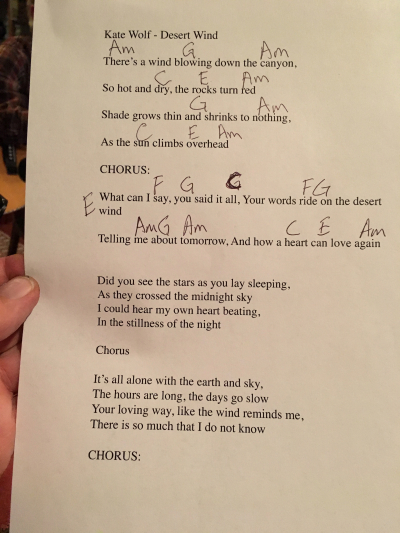 Kate Wolf - Desert Wind
Am G Am
There's a wind blowing down the canyon,
C E Am
So hot and dry, the rocks turn red
G Am
Shade grows thin and shrinks to nothing,
C E Am
As the sun climbs overhead
CHORUS:
F G G FG
What can I say, you said it all, Your words ride on the desert
E wind
AmG Am C E Am
Telling me about tomorrow, And how a heart can love again
Did you see the stars as you lay sleeping,
As they crossed the midnight sky
I could hear my own heart beating,
In the stillness of the night
Chorus
It's all alone with the earth and sky,
The hours are long, the days go slow
Your loving way, like the wind reminds me,
There is so much that I do not know
CHORUS: